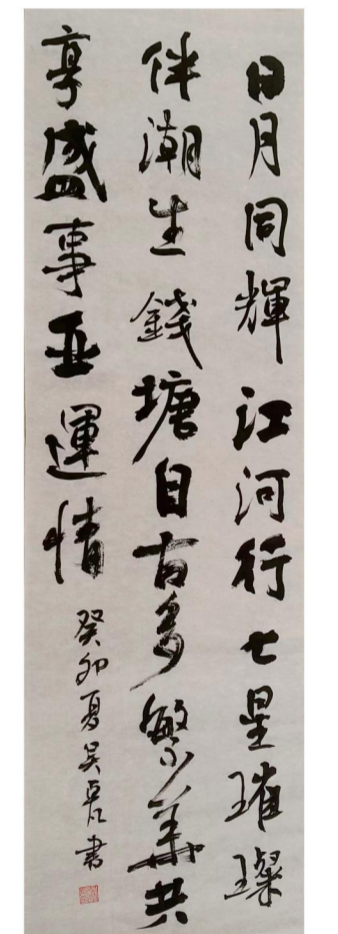 日月同輝江河行七星璀璨
伴潮生錢塘自古多繁華共
享盛事亚運情
癸卯夏吴書